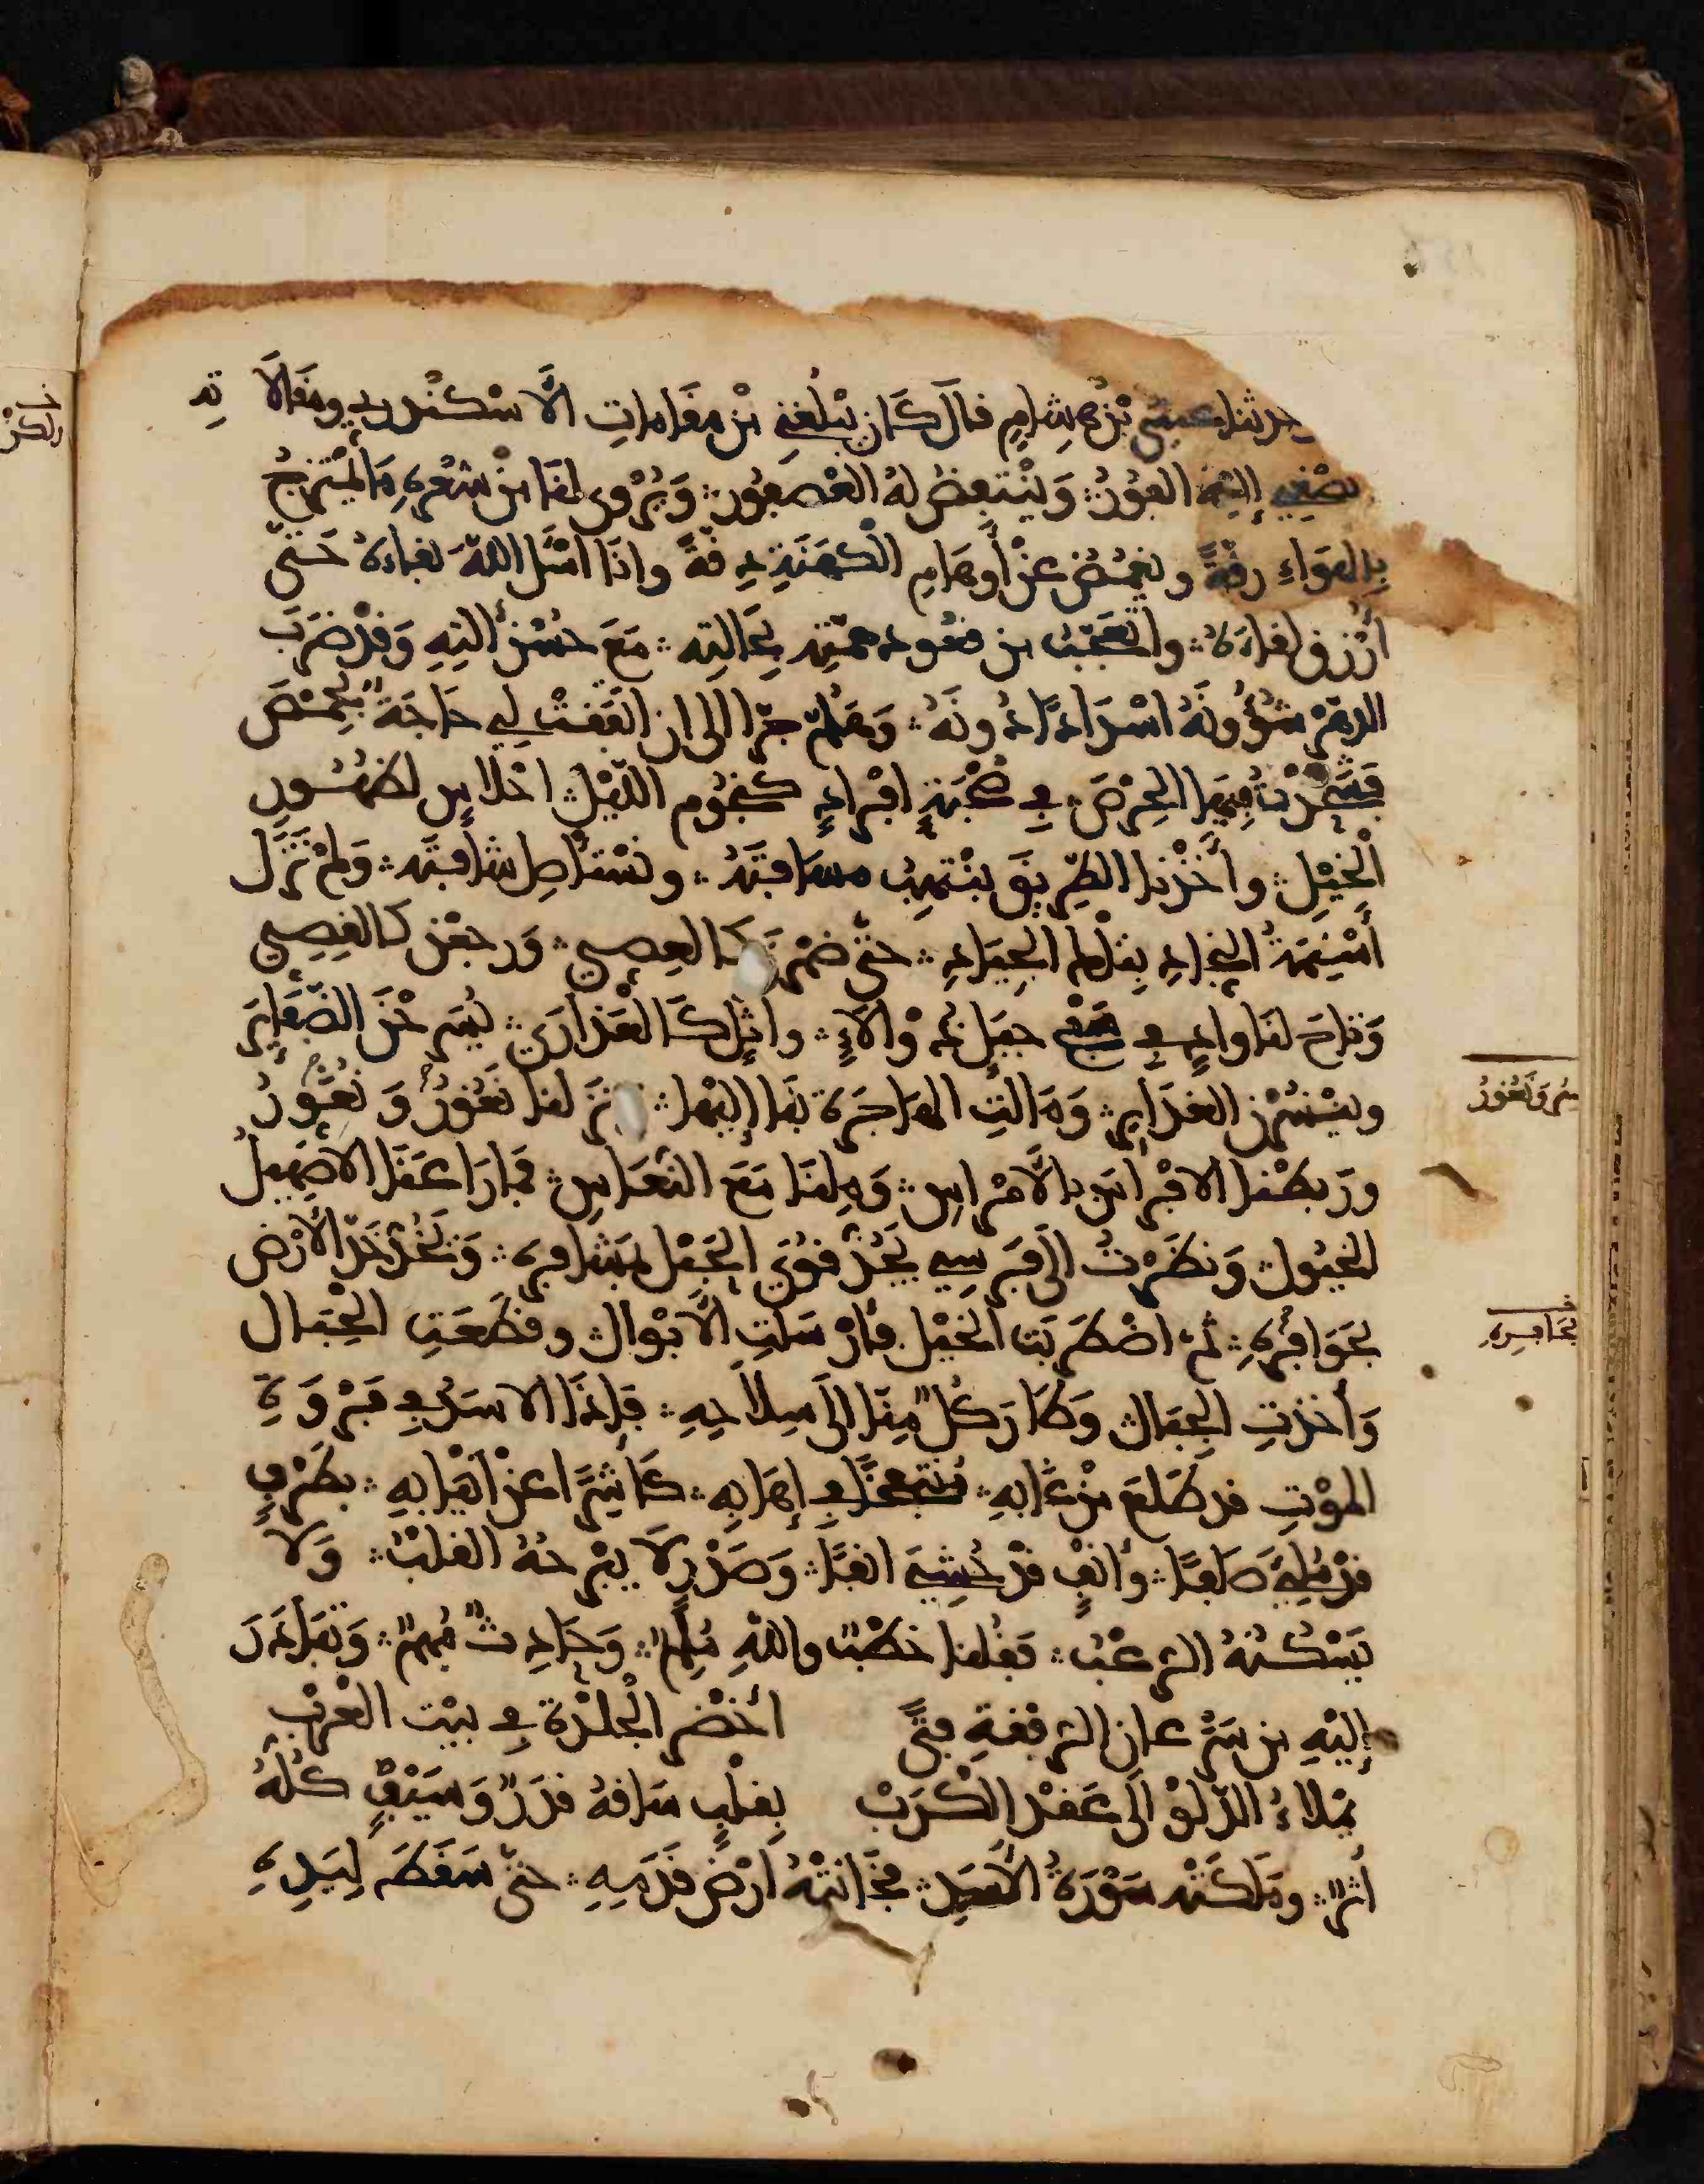 حدثنا عيسى بْنُ هِشامٍ قالَ كَانَ يَبْلُغني مِنْ مقَاماتِ الأَسْكنْدري ومقالَاتِهِ
يصْغي إليْهِ النفورُ وَيَنْتَفِضُ لهُ العُصْفورُ وَيُرْوى لنَا مِنْ شِعْرِهِ مَا يَمْتزِجُ
بِالهَوَاءِ رِقَّةً ويغمُضُ عنْ أَوهَامِ الْكهَنَةِ دِقَّةً وانَا اسْئل اللهَ بقاءهُ حَتى
أُرْزق لقاءَهُ واتعَجّبُ من قعود همّتِهِ بِحَالتِهِ مَعَ حُسْنِ آلتِهِ وَقدْ ضَرَبَ
الدهْرُ شُؤُونَهُ اسْدَاداً دُونَهُ وَهَلُمّ جرّا الى ان اتفَقتْ لي حَاجَةٌ بِحِمْصَ
فشحَذْتُ فِيهَا الحِرْصَ في صُحْبَةٍ افْرادٍ كنجُومِ الليْلِ احْلاسٍ لظُهُورِ
الْخَيْلِ وأَخذْنا الطرِيقَ ننْتهِبُ مسَافتَهُ ونسْتأصِل شافتَه وَلمْ نَزَل
أسْنِمَةَ النِّجادِ بِتلْك الجِيَادِ حتّى ضمُرْنَ كالعِصِي وَرجعْنَ كالقِسِي
وَتاحَ لنَا وادٍ في سَفْحِ جبَلٍ ذي ألاءٍ واثلٍ كالعَذارَى يُسَرّحْنَ الضّفَائِرَ
وينْشُرْنَ الغدَائِر وَمَالتِ الهَاجرَة بنَا إليْها نزَلنا نغُورُ وَنغُورُ
ورَبطْنا الافْراسَ بالأمْراسِ وَمِلنَا مَعَ النّعَاسِ فمَا رَاعَنَا الا صَهِيلُ
الخيُول وَنظَرْتُ الَى فَرَسِي يَجُذّ قوَى الحَبْل بمَشافِرِهِ وَيَخُدّ خَدّ الأرْضِ
بحَوَافِرِهِ ثمّ اضْطرَبَتِ الخيْل فأرْسَلتِ الأبْوالَ وقطّعَتِ الحِبَال
وَأخذتِ الجِبَال وَطَارَ كُلٌّ مِنّا الَى سِلاحِهِ فَإِذَا الاسَدُ في فَرْوَةِ
الموْتِ قد طَلعَ مِنْ غَابهِ مُنتفِخاً في إهَابِهِ كَاشِراً عنْ أنيَابِهِ بطَرْفٍ
قدْ مُلِئَ صَلَفاً وأنْفٍ قدْ حُشِيَ انَفاً وَصَدْرٍ لا يبْرحُهُ القلبُ وَلا
يَسْكُنُهُ الرعْبُ فقُلنا خطْبٌ واللهِ مُلِمٌّ وَحَادِثٌ مُهِمٌّ وَتبَادَرَ
إليْهِ من سَرَعان الرفقةِ فتًى أخْضر الْجلدَة في بيْتِ العَرَبْ
يمْلاءُ الدّلوَ الَى عَقدِ الكَرَبْ بقلْبٍ سَاقهُ قدَرٌ وَسَيْفٍ كلّهُ
أثرٌ وملكَتْه سَوْرَةُ الأسَدِ فخَانَتْهُ أرْضُ قدَمِهِ حتّى سَقطَ لِيَدِهِ
بحَافِرِهِ